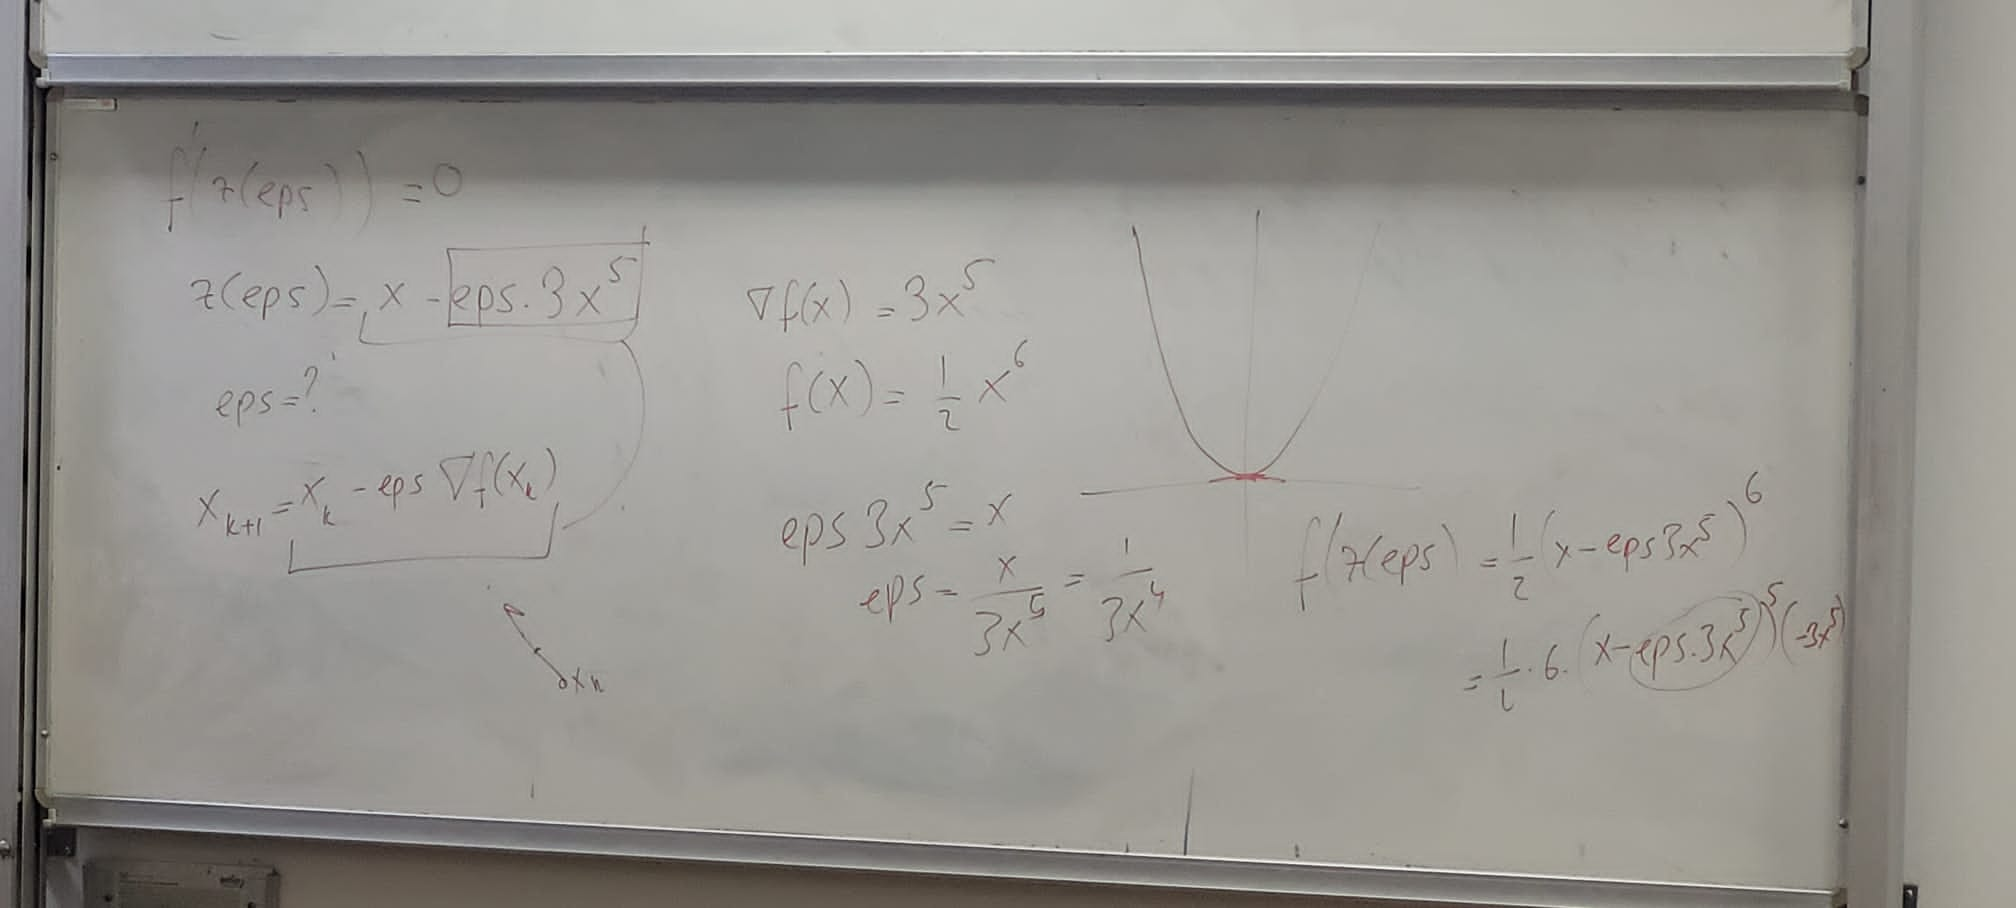 f'(z(eps)) = 0
z(eps) = x - eps.3x^5
eps=?
x_{k+1} = x_k - eps ∇f(x_k)
x_k
∇f(x) = 3x^5
f(x) = 1/2 x^6
eps 3x^5 = x
eps = x/3x^5 = 1/3x^4
f(z(eps) = 1/2 (x - eps3x^5)^6
= 1/2 . 6. (x - eps.3x^5)^5 (-3x^5)